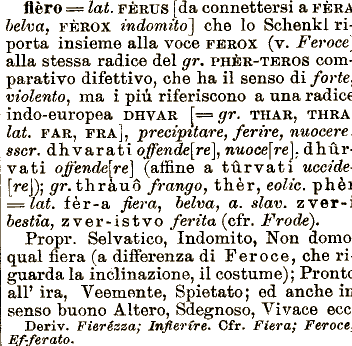 fièro = lat. FÈRUS [da connettersi a FÈRA
belva, FÈROX indomito] che lo Schenkl ri-
porta insieme alla voce FEROX (v. Feroce)
alla stessa radice del gr. PHÈR-TEROS com-
parativo difettivo, che ha il senso di forte,
violento, ma i piú riferiscono a una radice
indo-europea DHVAR [= gr. THAR, THRA,
lat. FAR, FRA], precipitare, ferire, nuocere:
sscr. dhvarati offende[re], nuoce[re], dhûr-
vati offende[re] (affine a tûrvati uccide-
[re]); gr. thràuô frango, thèr, eolic. phèr
= lat. fèr-a fiera, belva, a. slav. zver-i
bestia, zver-istvo ferita (cfr. Frode).
Propr. Selvatico, Indomito, Non domo
qual fiera (a differenza di Feroce, che ri-
guarda la inclinazione, il costume); Pronto
all' ira, Veemente, Spietato; ed anche in
senso buono Altero, Sdegnoso, Vivace ecc.
Deriv. Fierézza; Infieríre. Cfr. Fiera; Feroce;
Ef-ferato.